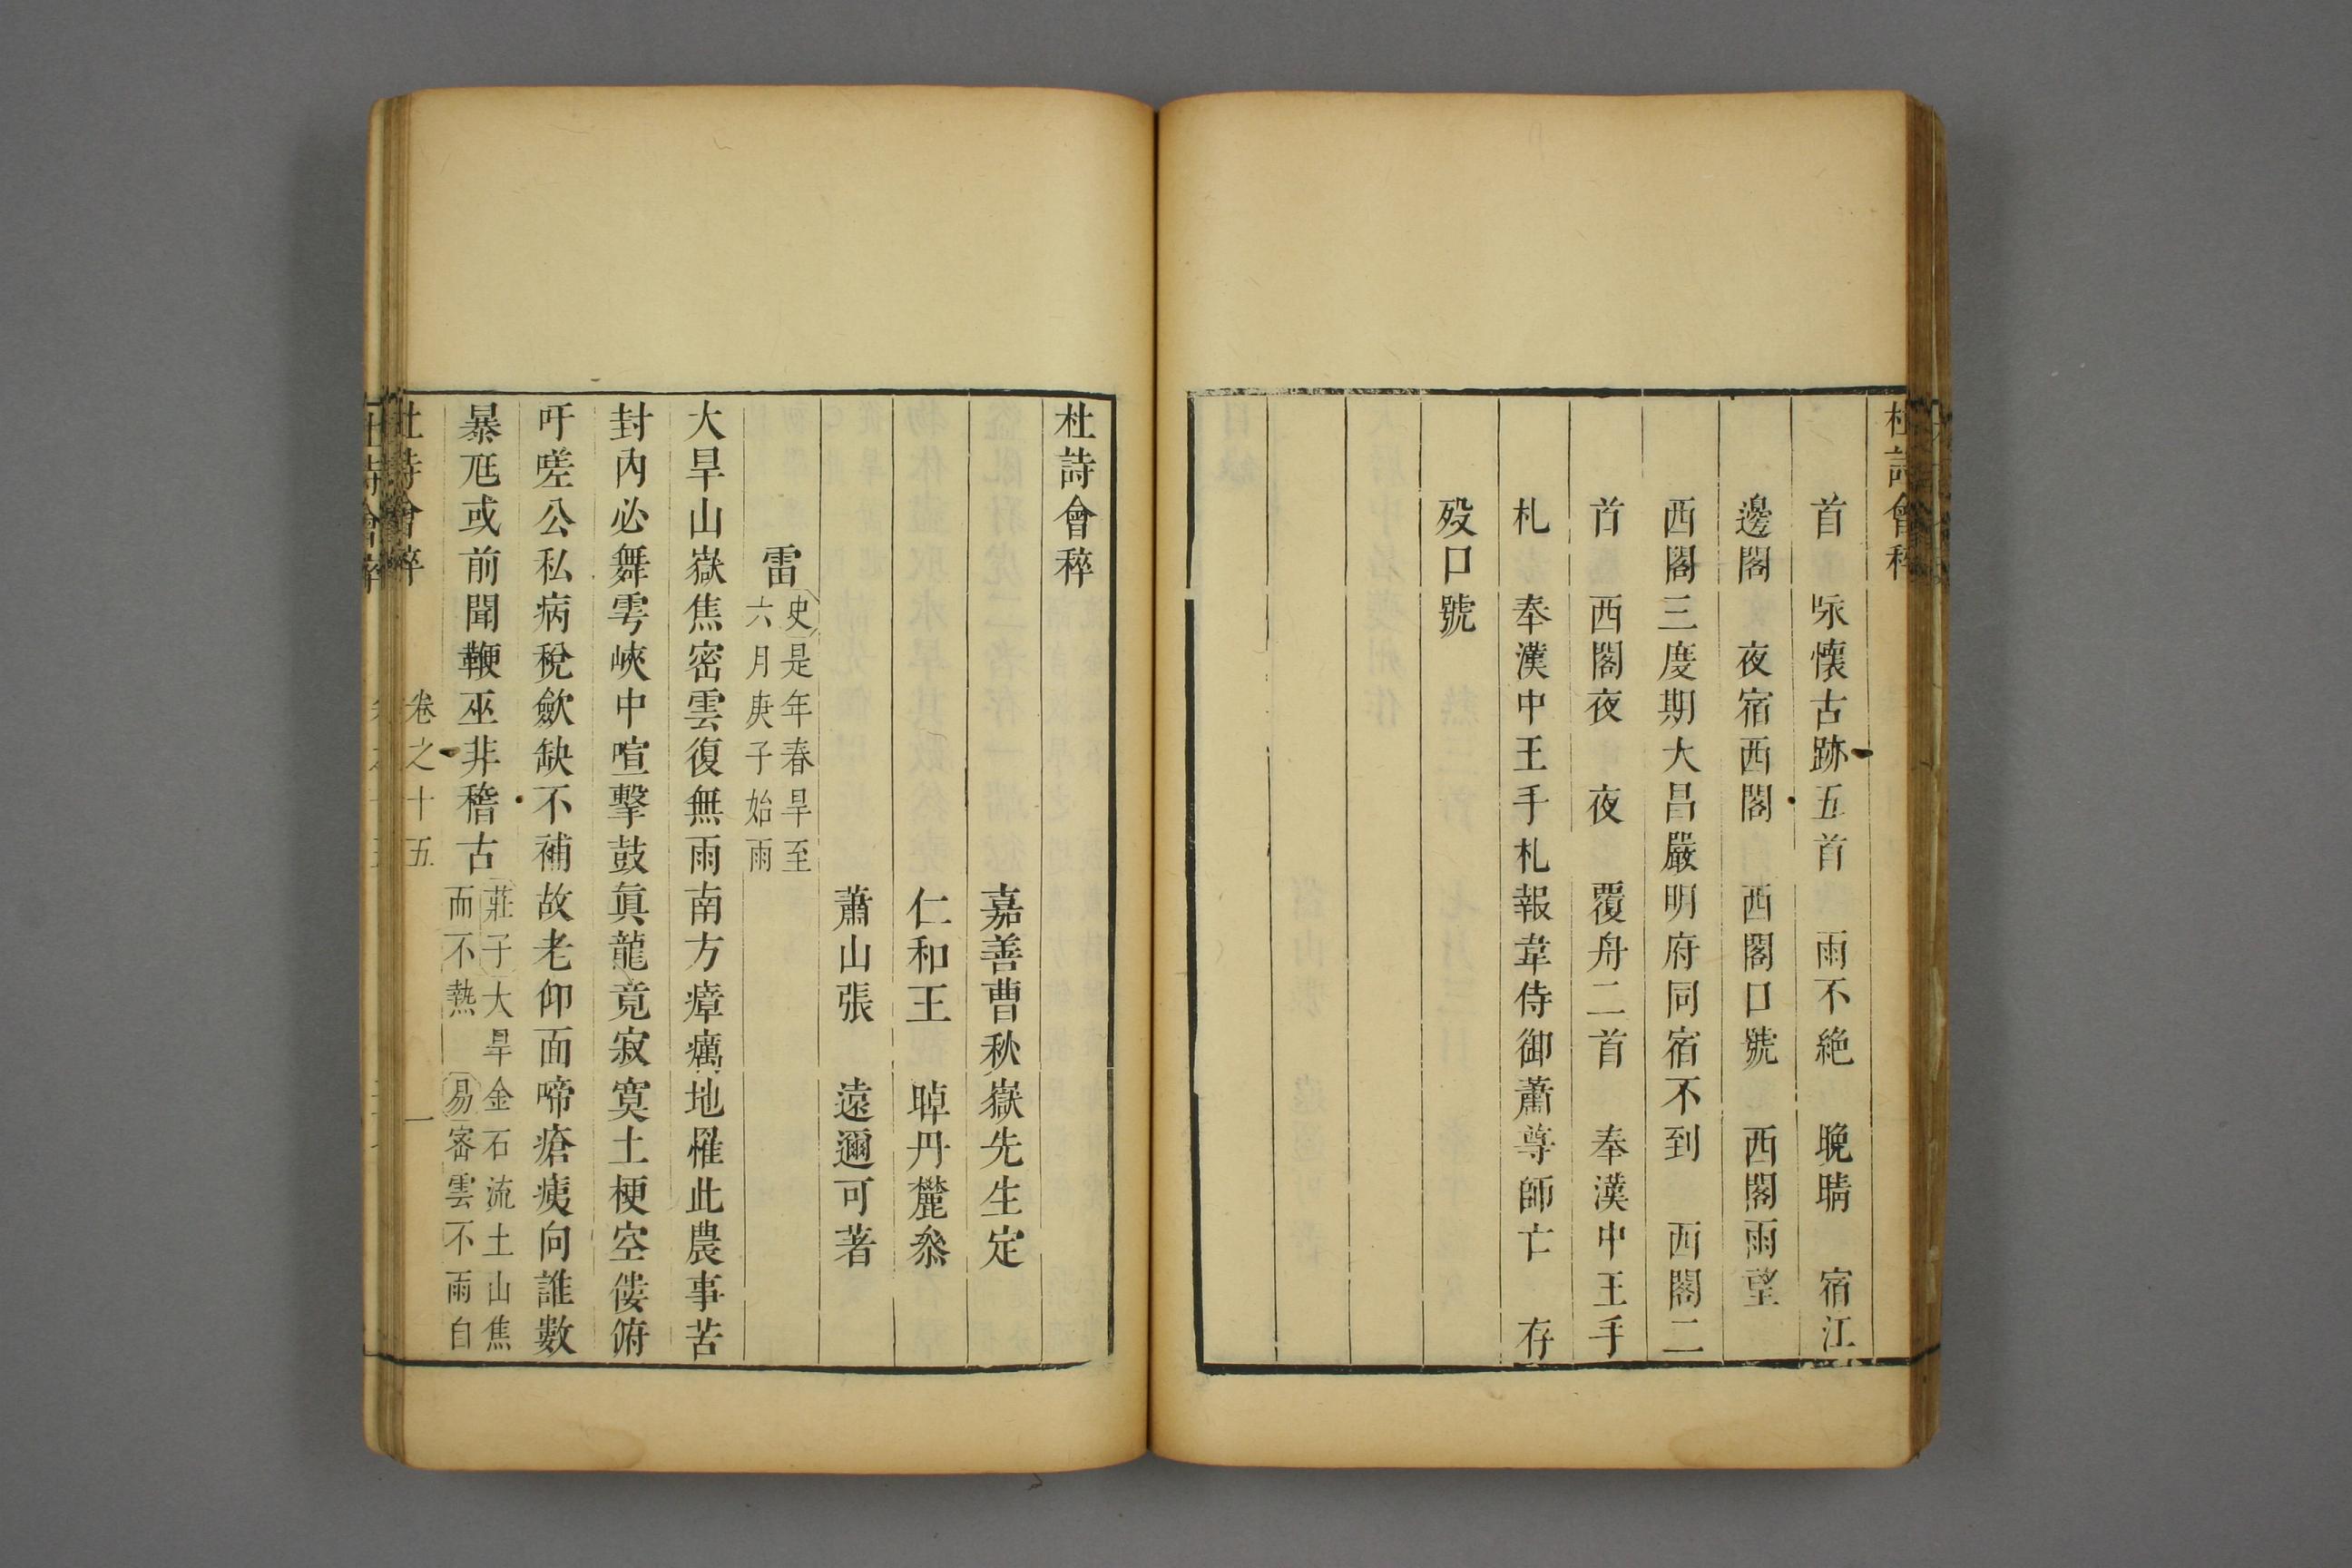 杜詩會稡
首　咏懷古跡五首　雨不絶　晚晴　宿江
邊閣　夜宿西閣　西閣口號　西閣雨望
西閣三度期大昌嚴明府同宿不到　西閣二
首　西閣夜　夜　覆舟二首　奉漢中王手
札　奉漢中王手札報韋侍御蕭尊師亡　存
殁口號
杜詩會稡
嘉善曹秋嶽先生定
仁和王　晫丹麓叅
蕭山張　遠邇可著
雷
史是年春旱至
六月庚子始雨
大旱山嶽焦密雲復無雨南方瘴癘地罹此農事苦
封內必舞雩峽中喧擊鼓眞龍竟寂寞土梗空僂俯
吁嗟公私病稅歛缺不補故老仰面啼瘡痍向誰數
暴尫或前聞鞭巫非稽古
莊子大旱金石流土山焦
而不熱　易密雲不雨自
杜詩會稡　卷之十五　一